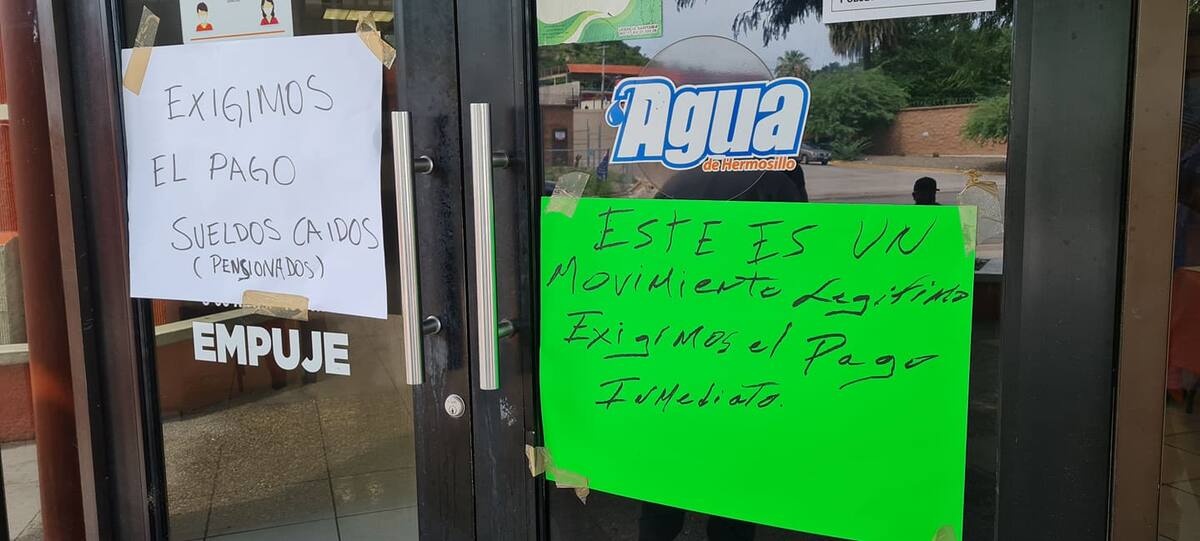 EXIGIMOS
EL PAGO
SUELDOS CAIDOS
(PENSIONADOS)
EMPUJE
Agua
de Hermosillo
ESTE ES UN
MOVIMIENTO LEGITIMO
EXIGIMOS el PAGO
INMEDIATO.